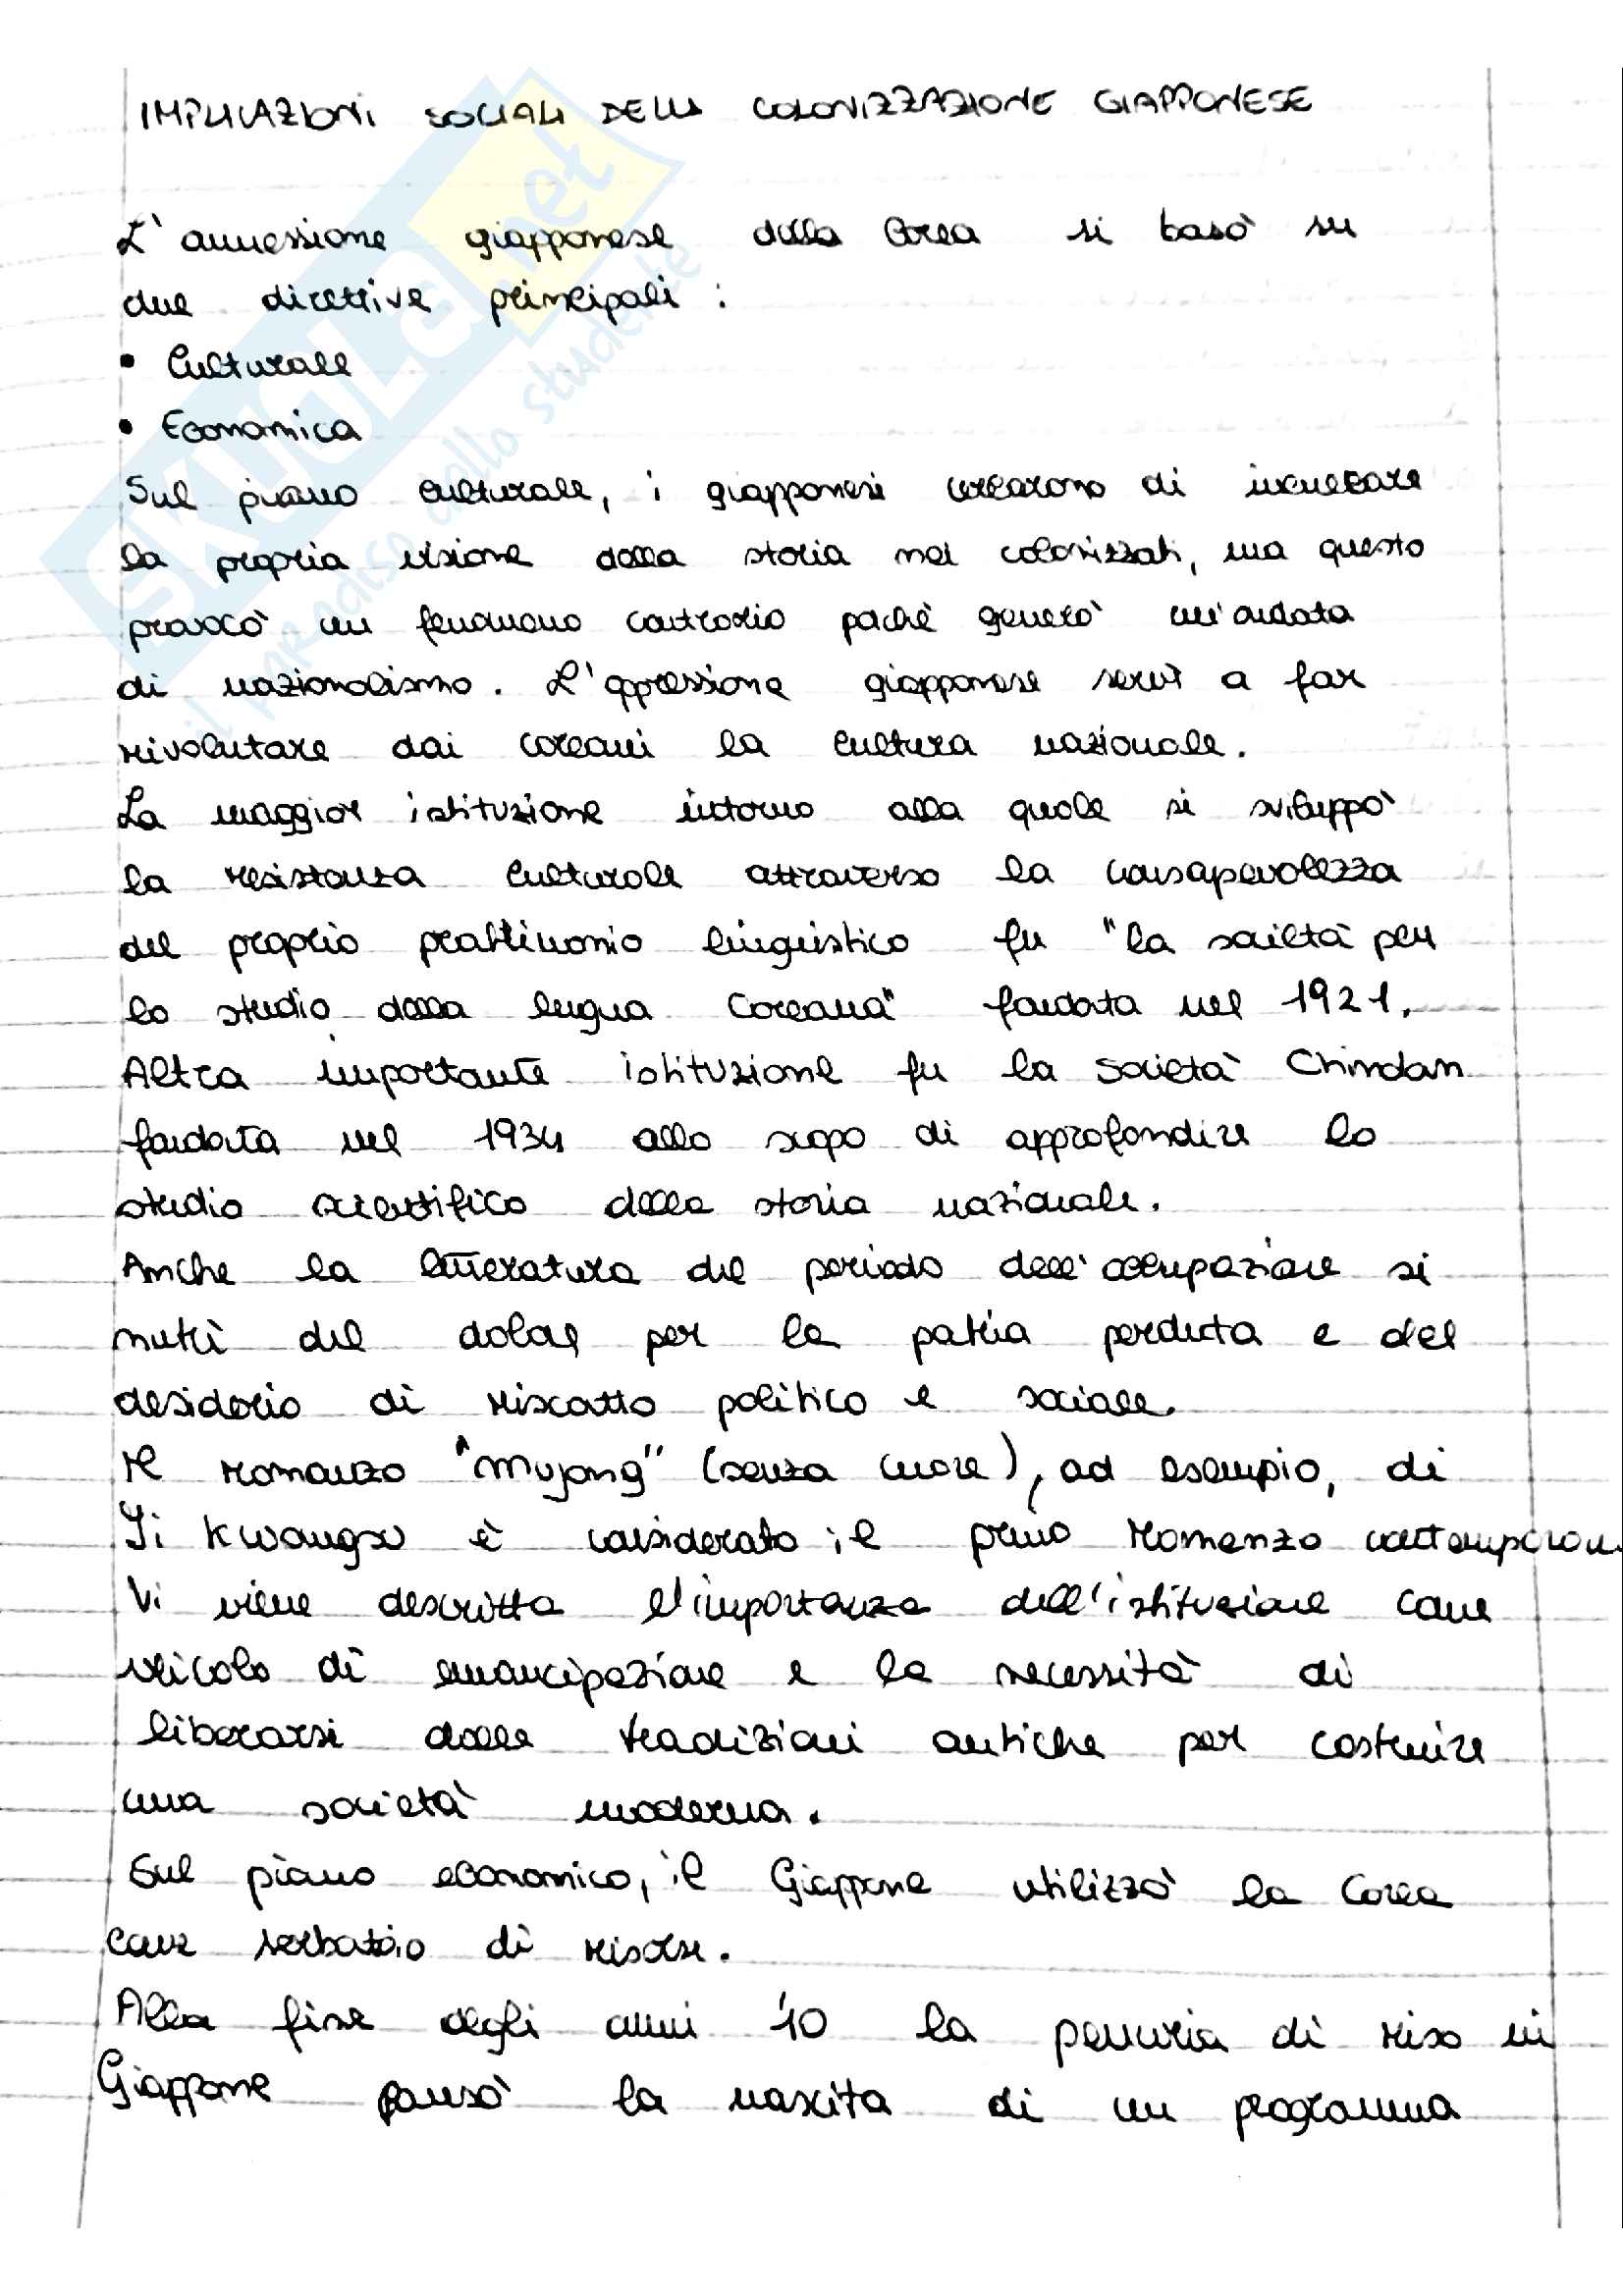 IMPLICAZIONI SOCIALI DELLA COLONIZZAZIONE GIAPPONESE
L'annessione giapponese della Corea si basò su
due direttive principali :
• Culturale
• Economica
Sul piano culturale, i giapponesi cercarono di inculcare
la propria visione della storia nei colonizzati, ma questo
provocò un fenomeno contrario perché generò un'ondata
di nazionalismo. L'oppressione giapponese servì a far
rivalutare dai coreani la cultura nazionale.
La maggior istituzione intorno alla quale si sviluppò
la resistenza culturale attraverso la consapevolezza
del proprio linguistico fu "la società per
lo studio della lingua Coreana" fondata nel 1921.
Altra importante istituzione fu la società Chindan
fondata nel 1934 allo scopo di approfondire lo
studio scientifico della storia nazionale.
Anche la letteratura del periodo dell'occupazione si
nutrì del dolore per la patria perduta e del
desiderio di riscatto politico e sociale.
Il romanzo "Mujong" (senza cuore), ad esempio, di
Yi Kwangsu è considerato il primo romanzo
Vi viene descritta l'importanza dell'istituzione come
veicolo di emancipazione e la necessità di
liberarsi dalle tradizioni antiche per costruire
una società moderna.
Sul piano economico, il Giappone utilizzò la Corea
come serbatoio di risorse.
Alla fine degli anni '10 la penuria di riso in
Giappone causò la nascita di un programma
SKUOLA.net
il paradiso dello studente